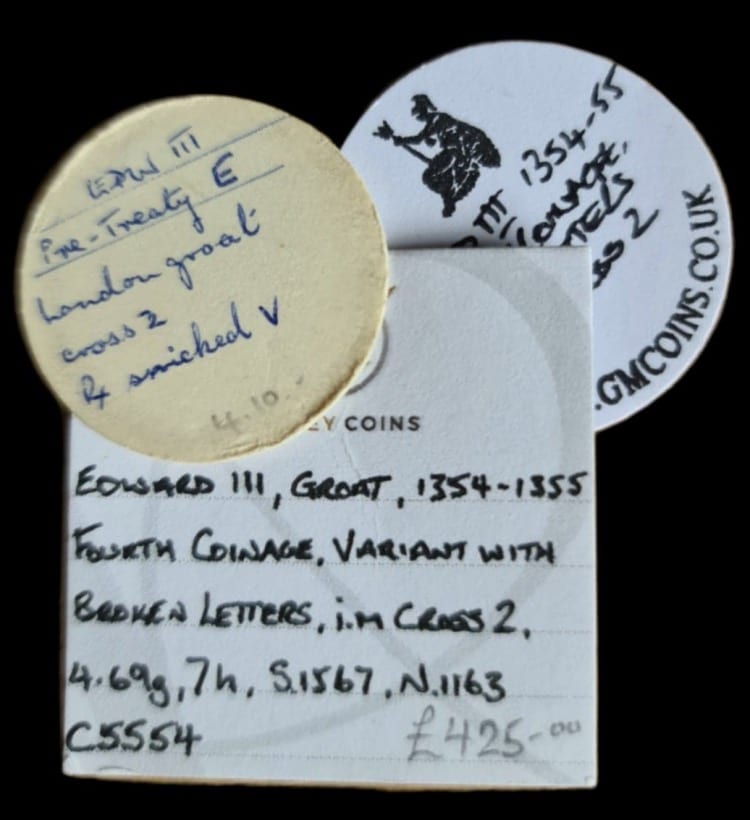 EDW III
Pre-Treaty E
London groat
cross 2
Rx snicked V
4.10.-
III 1354-55
COINAGE,
2
.GMCOINS.CO.UK
EY COINS
EDWARD III, GROAT, 1354-1355
FOURTH COINAGE, VARIANT WITH
BROKEN LETTERS, i.m CROSS 2,
4.69g, 7h, S.1567, N.1163
C5554
£425-00